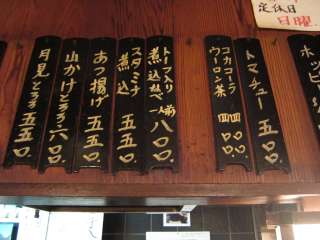 定休日
日曜
ホッピ
トマチュー 五〇〇.
コカコーラ 四〇〇.
ウーロン茶 四〇〇.
トーフ入り煮込 一人前 八〇〇.
スタミナ煮込 五五〇.
あつ揚げ 五五〇.
山かけとろろ 六〇〇.
月見とろろ 五五〇.